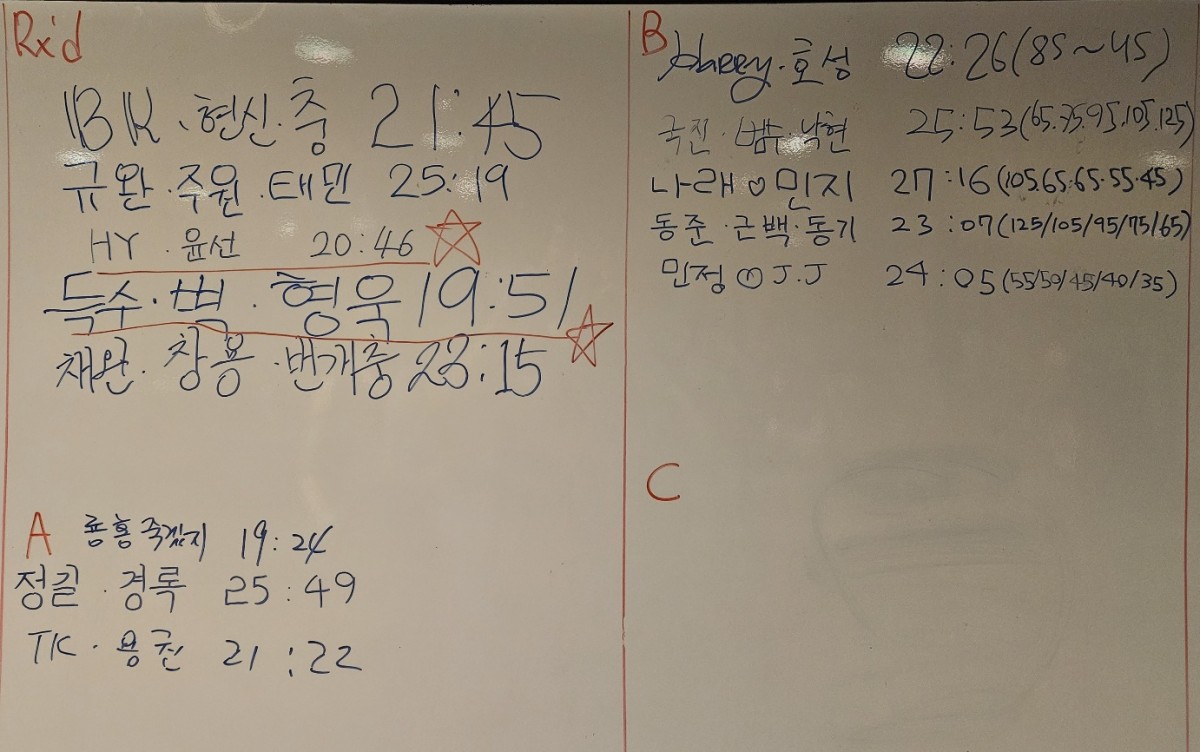 Rx'd
BK · 현신 · 충 21:45
규완 · 주원 · 태민 25:19
HY · 윤선 20:46
득수 · 벅 · 형욱 19:51
채완 · 창용 · 번개충 23:15
A 룡홍죽겄지 19:24
정길 · 경록 25:49
TK · 용권 21:22
B Harry · 호성 22:26(85~45)
국진 · 뱀 · 낙현 25:53(65.75.95.105.125)
나래 ♡ 민지 27:16(105.65.65.55.45)
동준 · 근백 · 동기 23:07(125/105/95/75/65)
민정 J.J 24:05(55/50/45/40/35)
C